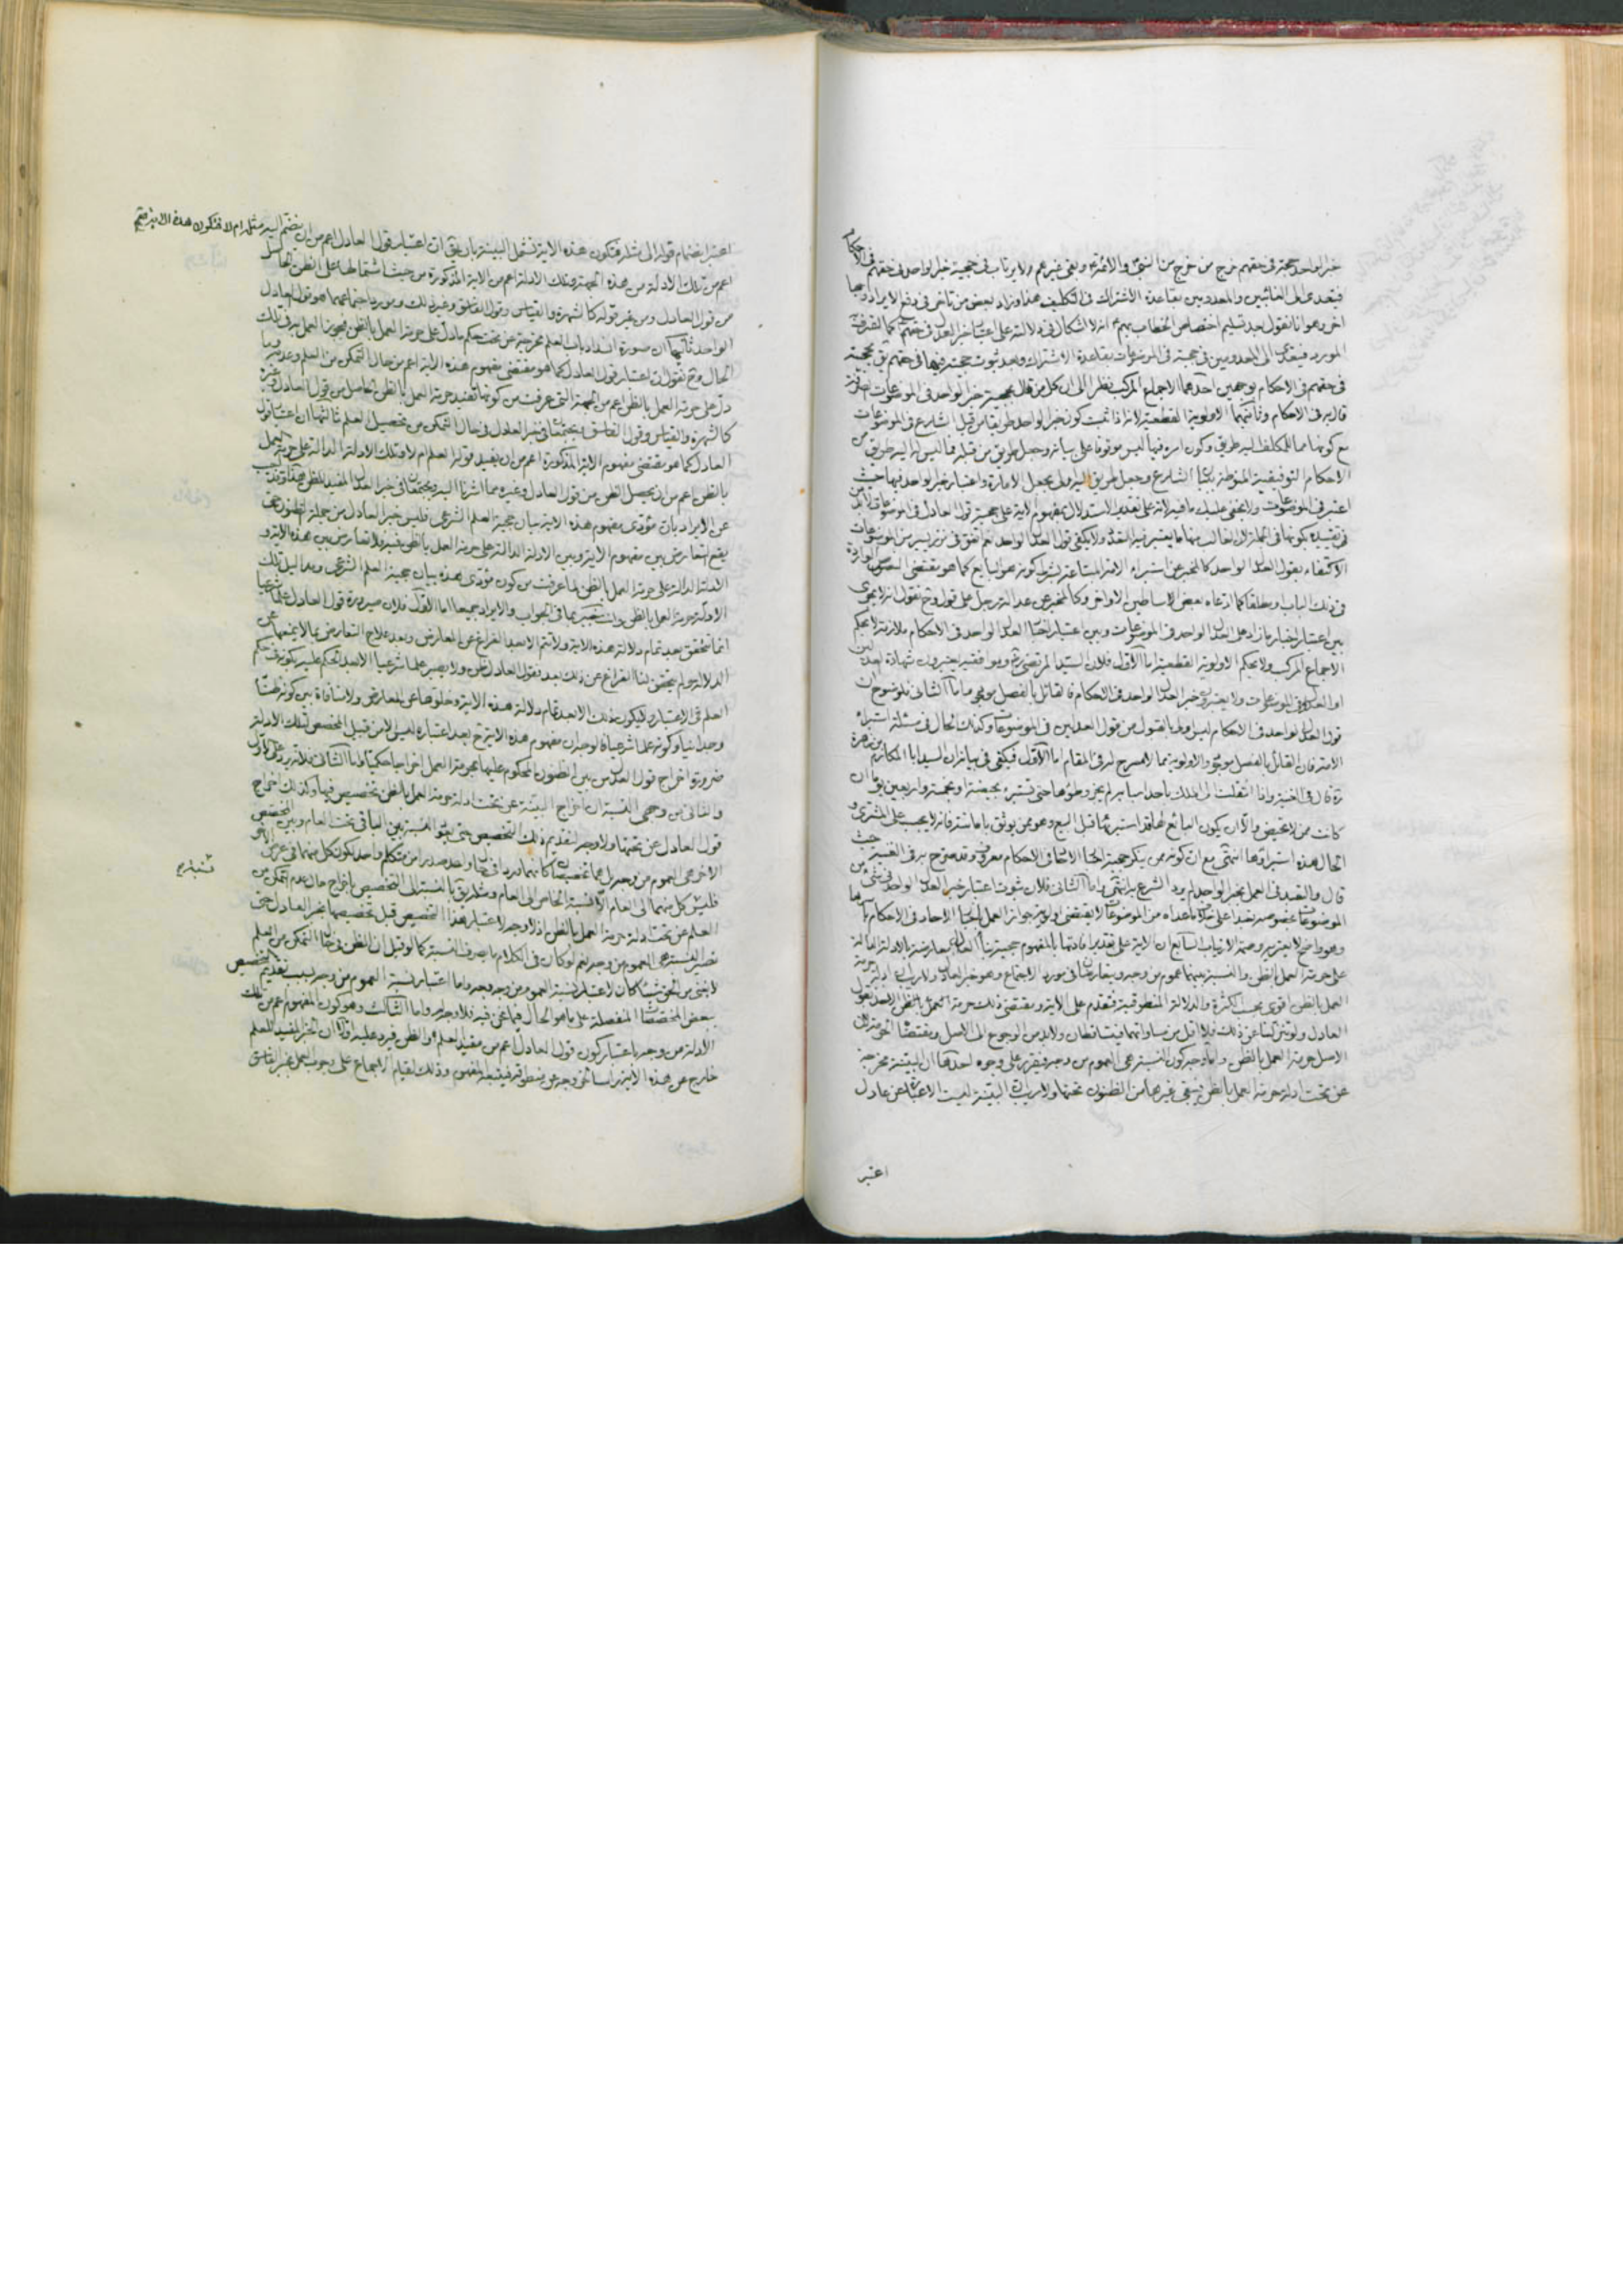 خبر الواحد حجة فى حقهم خرج من خرج من النبى والائمة وبقى غيرهم ولا يرتاب فى حجية خبر الواحد فى حقهم فى الاحكام
فيتعدى الى الغائبين والمعدومين بقاعدة الاشتراك فى التكليف هذا وزاد بعض من تأخر فى دفع الايراد
اخر وهو انا نقول بعد تسليم اختصاص الخطاب بهم انه لا اشكال فى دلالته على اعتبار خبر العدل فى حقهم
المورد فيتعدى الى المعدومين فى حجيته فى الموضوعات بقاعدة الاشتراك وبعد ثبوت حجيته فيها فى حقهم
فى حقهم فى الاحكام بوجهين احدهما الاجماع المركب نظرا الى ان كل من قال بحجية خبر الواحد فى الموضوعات
قال به فى الاحكام وثانيهما الاولوية القطعية لانه اذا ثبت كون خبر الواحد طريقا من قبل الشارع فى الموضوعات
مع كونها مما للمكلف اليه طريق وكون امره فيها ليس موقوفا على بيانه وجعل طريق من قبله فما ليس اليه طريق من
الاحكام التوقيفية المنوطة ببيان الشارع وجعل طريق اليه اولى بجعل الامارة واعتبار خبر الواحد فيها حيث
اعتبر فى الموضوعات ولا يخفى عليك ما فيه لانه على تقدير الاستدلال بمفهوم الاية على حجية قول العادل فى الموضوعات لابد
الاكتفاء بقول العدل الواحد كالمخبر عن استبراء الامة المبتاعة بشرط كونه هو البايع كما هو مقتضى النصوص الواردة
فى ذلك الباب او مطلقا كما ادعاه بعض الاساطين الاواخر وكالمخبر عن عدالة رجل على قول وح نقول انه لا يجرى
بين اعتبار اخبار ما زاد على العدل الواحد فى الموضوعات وبين اعتبار اخبار العدل الواحد فى الاحكام ملازمة لا بحكم
الاجماع المركب ولا بحكم الاولوية القطعية اما الاول فلان السيد المرتضى ره ومن وافقه يعتبرون شهادة العدلين
او العدل فى الموضوعات ولا يعتبرون خبر العدل الواحد فى الاحكام فالقائل بالفصل موجود واما الثانى فلوضوح ان
قول العدل الواحد فى الاحكام ليس اولى بالقبول من قول العدلين فى الموضوعات وكذلك الحال فى مسئلة استبراء
الامة فان القائل بالفصل موجود والاولوية مما لا مسرح له فى المقام اما الاول فيكفى فى بيانه ان السيد ابا المكارم بن زهرة
ره قال فى الغنية واذا انتقلت الى الملك باحد اسبابه لم يجز وطؤها حتى تستبرء بحيضة او بخمسة واربعين يوما ان
كانت ممن لا تحيض والا ان يكون البائع لها قد استبرئها قبل البيع وهو ممن يوثق بامانته فانه لا يجب على المشترى و
الحال هذه استبراؤها انتهى مع ان كونه ممن ينكر حجية اخبار الاحاد فى الاحكام معروف وقد صرح به فى الغنية حيث
قال والتعبد فى العمل بخبر الواحد لم يرد الشرع به انتهى واما الثانى فلان ثبوت اعتبار خبر العدل الواحد فى شىء من
الموضوعات بخصوصه تعبدا على خلاف ما عداه من الموضوعات لا يقتضى اولوية جواز العمل باخبار الاحاد فى الاحكام
وهو واضح لا يعتريه وصمة الارتياب السابع ان الاية على تقدير افادتها بالمفهوم حجية نبأ العادل معارضة بالادلة الدالة
على حرمة العمل بالظن والنسبة بينهما عموم من وجه ويتعارضان فى مورد الاجتماع وهو خبر العادل ولا ريب ان ادلة حرمة
العمل بالظن اقوى بحسب الكثرة والدلالة المنطوقية فتقدم على الاية ومقتضى ذلك حرمة العمل بالظن الحاصل بقول
العادل ولو تنزلنا عن ذلك فلا اقل من مساواتهما فيتساقطان ولابد من الرجوع الى الاصل ومقتضاه الحرمة لان
الاصل حرمة العمل بالظن واما وجه كون النسبة هى العموم من وجه فيقرر على وجوه احدها ان البينة مخرجة
عن تحت ادلة حرمة العمل بالظن ويبقى غيرها من الظنون تحتها ولا ريب ان البينة ليست الا عبارة عن عادل
اعتبر
اعتبر انضمام قوله الى مثله فتكون هذه الاية تشمل البينة بان يحق ان اعتبار قول العادل اعم من ان ينضم اليه مثله ام لا فتكون هذه الاية
اعم من تلك الادلة من هذه الجهة وتلك الادلة اعم من الاية المذكورة من حيث اشتمالها على الظن الحاصل
من قول العادل ومن غير قوله كالشهرة والقياس وقول الفاسق وغير ذلك ومورد اجتماعهما هو قول العادل
الواحد ثانيها ان صورة انسداد باب العلم مخرجة عن تحت حكم ما دل على حرمة العمل بالظن فيجوز العمل به فى تلك
الحال وح نقول ان اعتبار قول العادل كما هو مقتضى مفهوم هذه الاية اعم من حال التمكن من العلم وعدمه وما
دل على حرمة العمل بالظن اعم من الجهة التى عرفت من كونها تفيد حرمة العمل بالظن الحاصل من قول العادل وغيره
كالشهرة والقياس وقول الفاسق ويجتمعان فى خبر العادل فى حال التمكن من تحصيل العلم ثالثها ان اعتبار قول
العادل كما هو مقتضى مفهوم الاية المذكورة اعم من ان يفيد قوله العلم ام لا وتلك الادلة الدالة على حرمة العمل
بالظن اعم من ان يحصل الظن من قول العادل وغيره مما اشرنا اليه ويجتمعان فى خبر العدل المفيد للظن هذا وقد يجيب
عن الايراد بان مؤدى مفهوم هذه الاية بيان حجية العلم الشرعى فليس خبر العادل من جملة الظنون حتى
يقع التعارض بين مفهوم الاية وبين الادلة الدالة على حرمة العمل بالظن فيه فلا تعارض بين هذه الاية و
الادلة الدالة على حرمة العمل بالظن لما عرفت من كون مؤدى هذه بيان حجية العلم الشرعى ومداليل تلك
الادلة حرمة العمل بالظن وانت خبير بما فى الجواب والايراد جميعا اما الاول فلان صيرورة قول العادل علما شرعيا
انما تتحقق بعد تمام دلالة هذه الاية ولا تتم الا بعد الفراغ عن المعارض وبعد علاج التعارض بما لا يمنعها عن
الدلالة ولم يتحقق لنا الفراغ عن ذلك بعد فقول العادل ظن ولا يصير علما شرعيا الا بعد الحكم عليه بكونه فى حكم
العلم فى الاعتبار ولا يكون ذلك الا بعد تمام دلالة هذه الاية وخلوها عن المعارض ولا منافاة بين كونه ظنا
وجدانيا وكونه علما شرعيا
ضرورة اخراج قول العدل من بين الظنون المحكوم عليها بحرمة العمل اخراجا حكميا واما الثانى فلانه يرد على الاول
والثانى من وجهى النسبة ان اخراج البينة عن تحت ادلة حرمة العمل بالظن تخصيص فيها وكذلك اخراج
قول العادل عن تحتها ولا وجه لتقديم ذلك التخصيص حتى يلاحظ النسبة بين الباقى تحت العام وبين المخصص
الاخر هى العموم من وجه بل هما تخصيصان كانهما وردا فى ان واحد صدرا من متكلم واحد يكون كل منهما فى عرض الاخر
فليس كل منهما الى العام الا نسبة الخاص الى العام ومثله يق بالنسبة الى التخصيص باخراج حال عدم التمكن من
العلم عن تحت ادلة حرمة العمل بالظن اذ لا وجه لاعتبار هذا التخصيص قبل تخصيصها بخبر العادل حتى
تصير النسبة هى العموم من وجه نعم لو كان فى الكلام ما يصرف النسبة كما لو قيل ان الظن فى حال التمكن من العلم
لا يغنى من الحق شيئا كان لاعتبار نسبة العموم من وجه وجه واما اعتبار نسبة العموم من وجه بسبب تقديم تخصيص
بعض المخصصات المنفصلة على ما هو الحال فيما نحن فيه فلا وجه له واما الثالث وهو كون المفهوم اعم من تلك
الادلة من وجه باعتبار كون قول العادل اعم من مفيد العلم والظن فيرد عليه اولا ان الخبر المفيد للعلم
خارج عن هذه الاية راسا حتى وجه عن منطوقه فيتبعه المفهوم وذلك لقيام الاجماع على وجوب العمل بخبر الفاسق